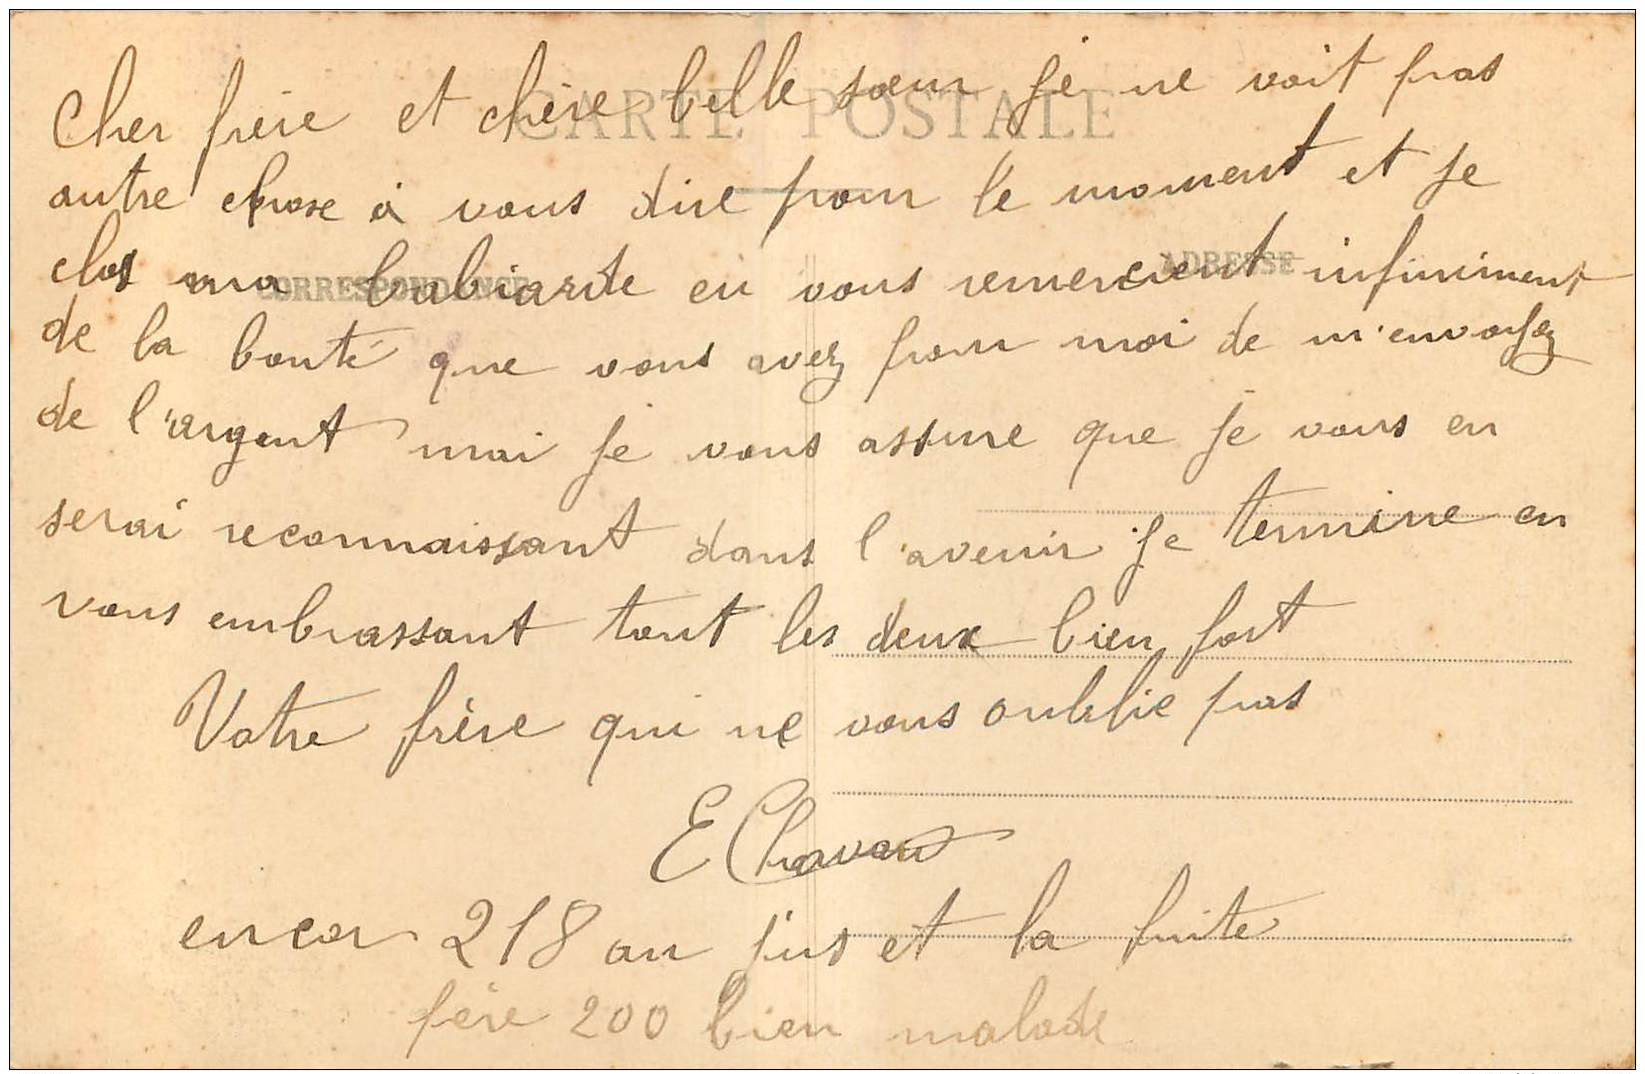 CARTE POSTALE
CORRESPONDANCE
ADRESSE
Cher frère et chère belle sœur je ne voit pas
autre chose à vous dire pour le moment et je
clos ma babiarde en vous remercient infiniment
de la bonté que vous avez pour moi de m'envoyez
de l'argent moi je vous assure que je vous en
serai reconnaissant dans l'avenir je termine en
vous embrassant tout les deux bien fort
Votre frère qui ne vous oublie pas
E
encor 218 au jus et la fuite
père 200 bien malade